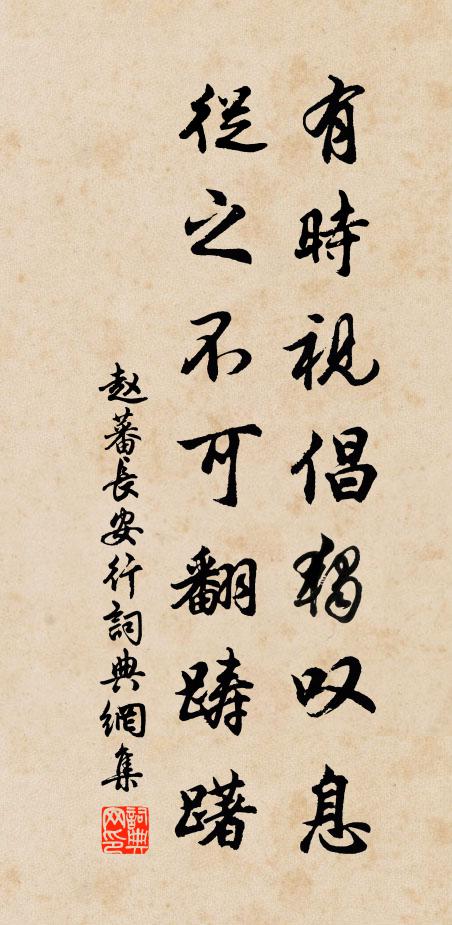 有時視倡獨叹息
從之不可翻踌躇
赵蕃長安行詞典網集
詞典网印